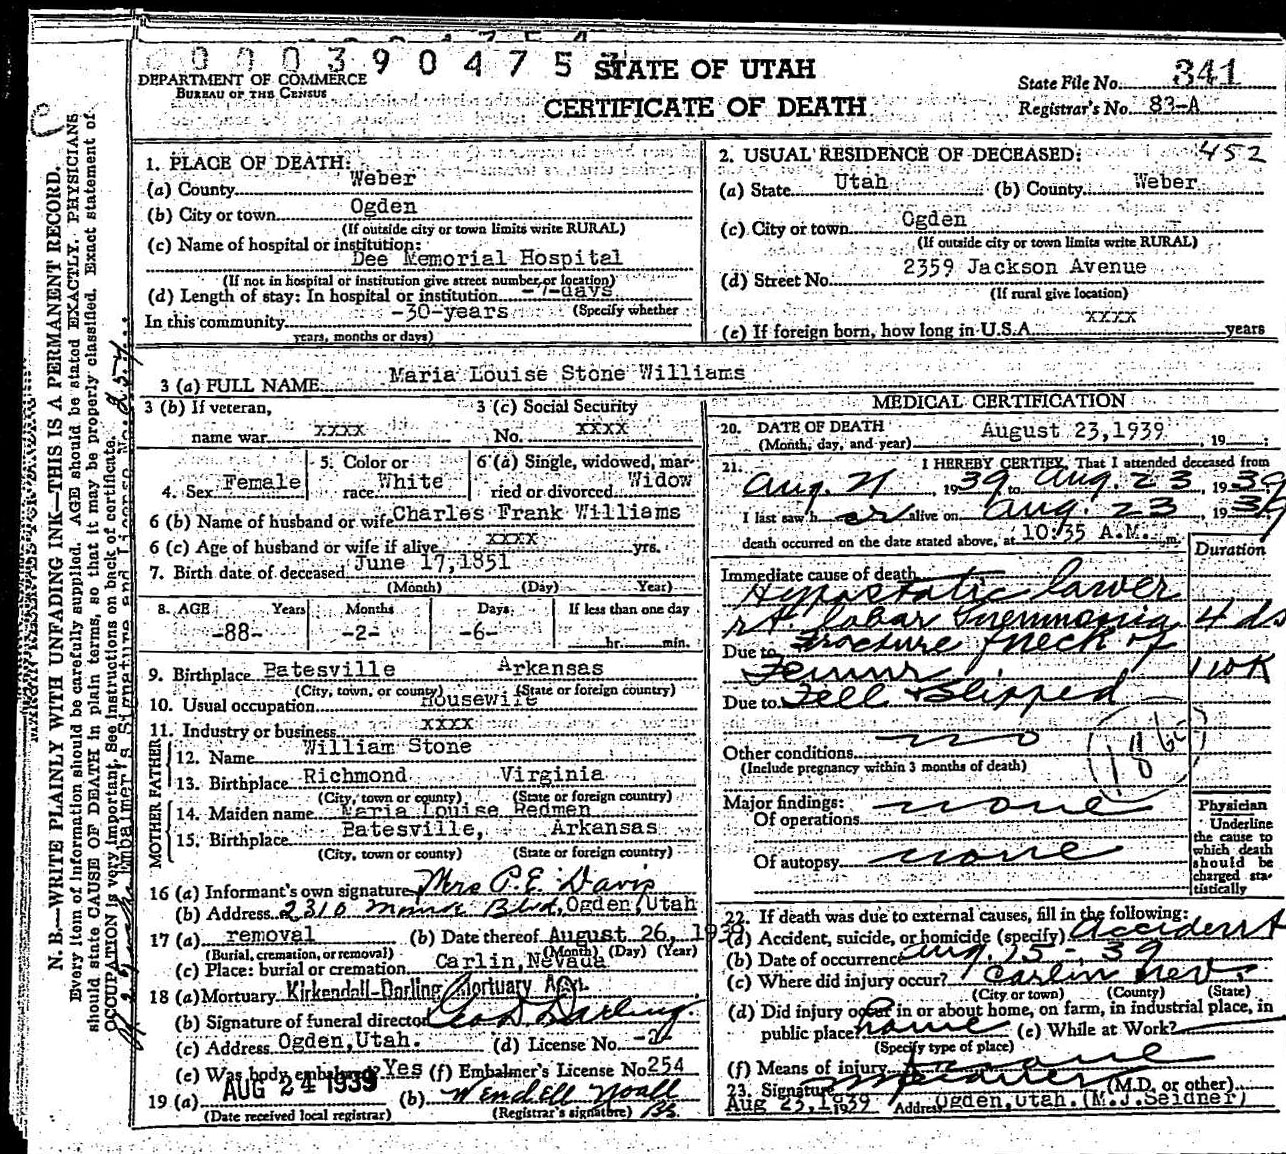 0 0 0 3 9 0 4 7 5
STATE OF UTAH
CERTIFICATE OF DEATH
DEPARTMENT OF COMMERCE
BUREAU OF THE CENSUS
State File No. 341
Registrar's No. 83-A
N. B.—WRITE PLAINLY WITH UNFADING INK—THIS IS A PERMANENT RECORD.
Every item of information should be carefully supplied. AGE should be stated EXACTLY. PHYSICIANS
should state CAUSE OF DEATH in plain terms, so that it may be properly classified. Exact statement of
OCCUPATION is very important. See instructions on back of certificate.
Embalmer's Signature and License No. 254
1. PLACE OF DEATH:
(a) County Weber
(b) City or town Ogden
(If outside city or town limits write RURAL)
(c) Name of hospital or institution:
Dee Memorial Hospital
(If not in hospital or institution give street number or location)
(d) Length of stay: In hospital or institution -7-days
(Specify whether
In this community -30-years
years, months or days)
2. USUAL RESIDENCE OF DECEASED: 452
(a) State Utah (b) County Weber
(c) City or town Ogden
(If outside city or town limits write RURAL)
(d) Street No. 2359 Jackson Avenue
(If rural give location)
(e) If foreign born, how long in U.S.A. xxxx years
3 (a) FULL NAME Maria Louise Stone Williams
3 (b) If veteran, name war xxxx
3 (c) Social Security No. xxxx
4. Sex Female
5. Color or race White
6 (a) Single, widowed, married or divorced Widow
6 (b) Name of husband or wife Charles Frank Williams
6 (c) Age of husband or wife if alive xxxx yrs.
7. Birth date of deceased June 17,1851
(Month) (Day) (Year)
8. AGE Years Months Days If less than one day
-88- -2- -6- hr. min.
9. Birthplace Batesville Arkansas
(City, town, or county) (State or foreign country)
10. Usual occupation Housewife
11. Industry or business xxxx
FATHER
12. Name William Stone
13. Birthplace Richmond Virginia
(City, town or county) (State or foreign country)
MOTHER
14. Maiden name Maria Louise Redmen
15. Birthplace Batesville, Arkansas
(City, town or county) (State or foreign country)
16 (a) Informant's own signature Mrs P.E. Davis
(b) Address 2310 Monroe Blvd, Ogden, Utah
17 (a) removal (b) Date thereof August 26, 1939
(Burial, cremation, or removal) (Month) (Day) (Year)
(c) Place: burial or cremation Carlin, Nevada
18 (a) Mortuary Kirkendall-Darling Mortuary
(b) Signature of funeral director Geo D Darling
(c) Address Ogden, Utah. (d) License No.
(e) Was body embalmed? Yes (f) Embalmer's License No 254
19 (a) AUG 24 1939 (b) Wendell Noall
(Date received local registrar) (Registrar's signature)
MEDICAL CERTIFICATION
20. DATE OF DEATH
(Month, day, and year) August 23,1939, 19 ;
21. I HEREBY CERTIFY, That I attended deceased from
Aug. 21, 1939 to Aug. 23, 1939
I last saw her alive on Aug. 23, 1939
death occurred on the date stated above, at 10:35 A.M. m.
Duration
Immediate cause of death
Hypostatic lower
rt lobar Pneumonia 4 ds
Due to Fracture neck of
Femur 1 wk
Due to Fell & Slipped
Other conditions no
(Include pregnancy within 3 months of death)
Major findings:
Of operations none
Of autopsy none
Physician
Underline the cause to which death should be charged statistically
22. If death was due to external causes, fill in the following:
(a) Accident, suicide, or homicide (specify) Accident
(b) Date of occurrence Aug. 15-39
(c) Where did injury occur? Carlin Nev.
(City or town) (County) (State)
(d) Did injury occur in or about home, on farm, in industrial place, in
public place? home (e) While at Work?
(Specify type of place)
(f) Means of injury none
23. Signature M J Seidner (M.D. or other)
Aug 23,1939 Address Ogden, Utah. (M.J.Seidner)